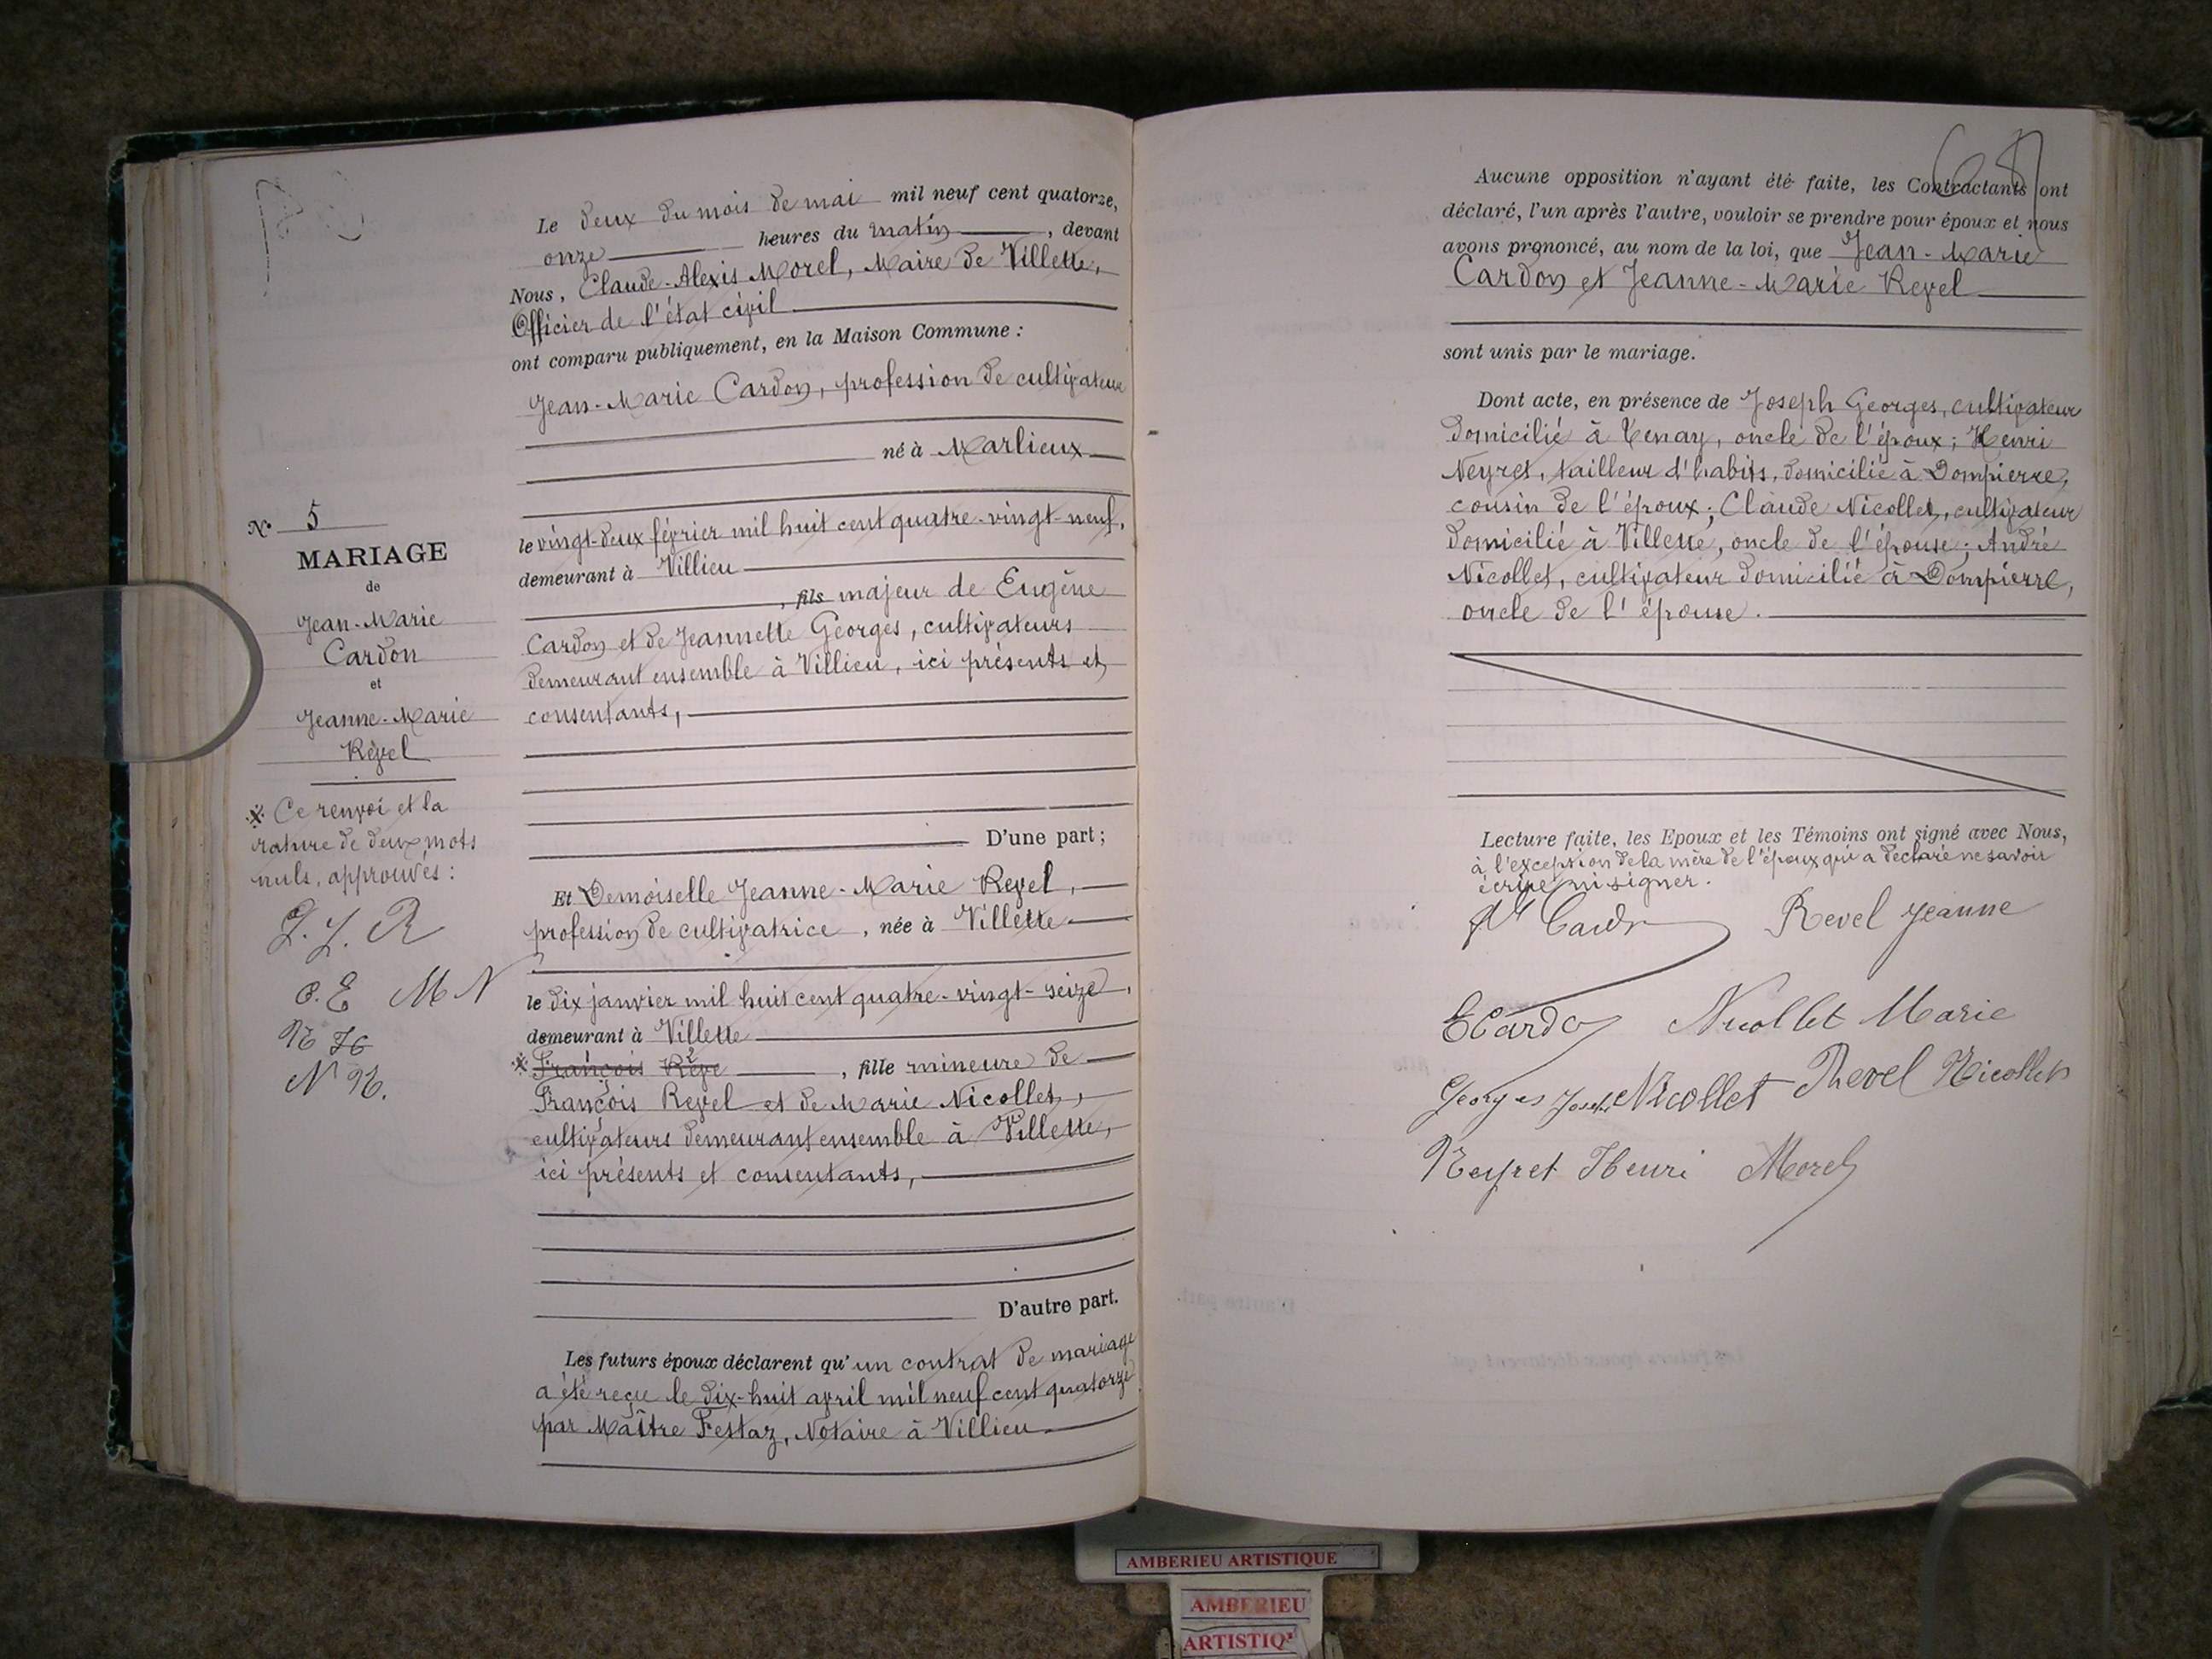 Le deux du mois de mai mil neuf cent quatorze,
onze heures du matin, devant
Nous, Claude-Alexis Morel, Maire de Villette,
Officier de l'état civil
ont comparu publiquement, en la Maison Commune :
Jean-Marie Cardon, profession de cultivateur
né à Marlieux
le vingt-deux février mil huit cent quatre-vingt-neuf,
demeurant à Villieu
, fils majeur de Eugène
Cardon et de Jeannette Georges, cultivateurs
demeurant ensemble à Villieu, ici présents et
consentants,
D'une part ;
Et Demoiselle Jeanne-Marie Revel,
profession de cultivatrice, née à Villette
le dix janvier mil huit cent quatre-vingt-seize,
demeurant à Villette
François Reve, fille mineure de
François Revel et de Marie Nicollet,
cultivateurs demeurant ensemble à Villette,
ici présents et consentants,
D'autre part.
Les futurs époux déclarent qu'un contrat de mariage
a été reçu le dix-huit avril mil neuf cent quatorze
par Maître Festaz, Notaire à Villieu
N° 5
MARIAGE
de
Jean-Marie
Cardon
et
Jeanne-Marie
Revel
Ce renvoi et la
rature de deux mots
nuls, approuvés :
J. J. R
C. E M N
N H
N R.
Aucune opposition n'ayant été faite, les Contractants ont
déclaré, l'un après l'autre, vouloir se prendre pour époux et nous
avons prononcé, au nom de la loi, que Jean-Marie
Cardon et Jeanne-Marie Revel
sont unis par le mariage.
Dont acte, en présence de Joseph Georges, cultivateur
domicilié à Tenay, oncle de l'époux ; Henri
Neyret, tailleur d'habits, domicilié à Dompierre,
cousin de l'époux ; Claude Nicollet, cultivateur
domicilié à Villette, oncle de l'épouse ; André
Nicollet, cultivateur domicilié à Dompierre,
oncle de l'épouse.
Lecture faite, les Epoux et les Témoins ont signé avec Nous,
à l'exception de la mère de l'époux qui a déclaré ne savoir
écrire ni signer.
Revel Jeanne
E Cardon Nicollet Marie
Georges Joseph Nicollet Revel Nicollet
Neyret Henri Morel
AMBERIEU ARTISTIQUE
AMBERIEU
ARTISTIQ